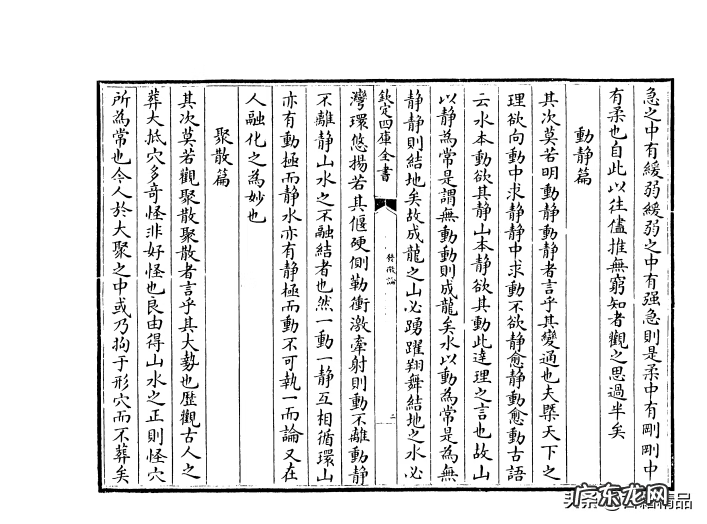 急之中有緩弱緩弱之中有强急則是柔中有剛剛中
有柔也自此以往儘推無窮知者觀之思過半矣
動静篇
其次莫若明動静動静者言乎其變通也夫槩天下之
理欲向動中求静静中求動不欲静愈静動愈動古語
云水本動欲其静山本静欲其動此達理之言也故山
以静為常是謂無動動則成龍矣水以動為常是為無
静静則結地矣故成龍之山必踴躍翔舞結地之水必
欽定四庫全書
發微論
二
灣環悠揚若其偃硬側勒衝激牽射則動不離動静
不離静山水之不融結者也然一動一静互相循環山
亦有動極而静水亦有静極而動不可執一而論又在
人融化之為妙也
聚散篇
其次莫若觀聚散聚散者言乎其大勢也歷觀古人之
葬大抵穴多奇怪非好怪也良由得山水之正則怪穴
所為常也今人於大聚之中或乃拘于形穴而不葬矣
广东龙网
头条